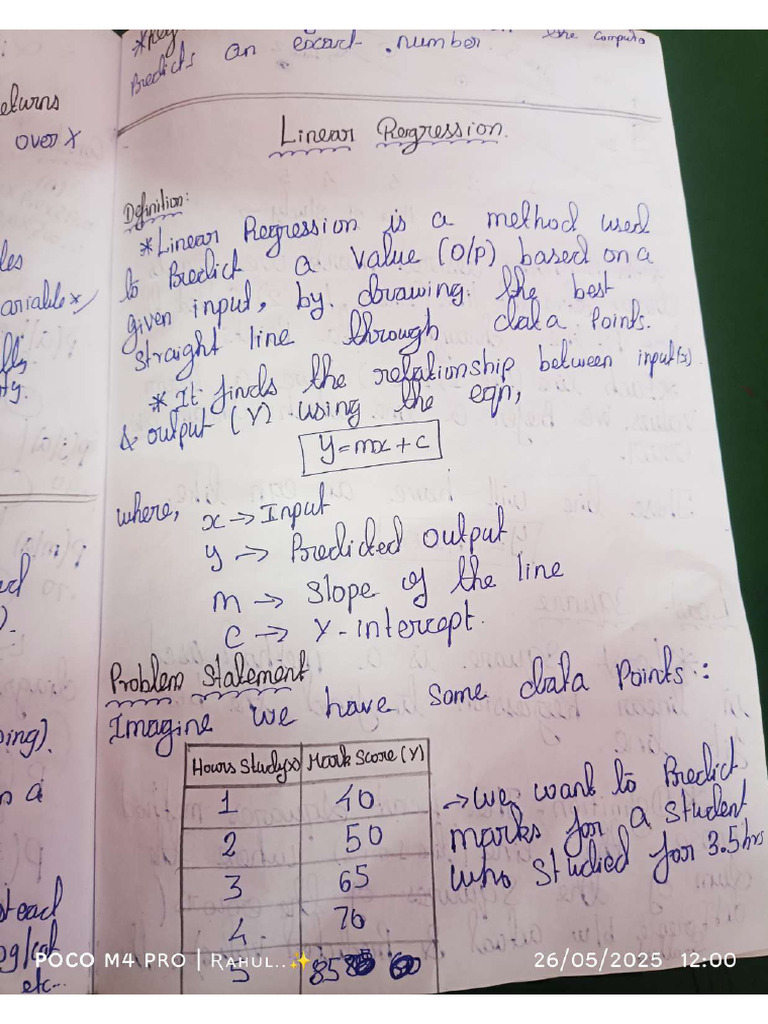 the Compute
Predicts an excact number
eturns
over X
Linear Regression.
Definition:
* Linear Regression is a method used
to Predict a value (O/P) based on a
given input, by drawing the best
straight line through data Points.
* It finds the relationship between input(x)
& output (Y) using the eqn,
y = mx + c
where, x → Input
y → Predicted output
m → Slope of the line
c → Y-intercept.
Problem Statement
Imagine we have some data Points:
Hours Study(x) Mark Score (Y)
1 40
2 50
3 65
4 70
5 85
→ we want to Predict
marks for a student
who studied for 3.5 hrs
ariable x
etc...
POCO M4 PRO | RAHUL..✨
26/05/2025 12:00